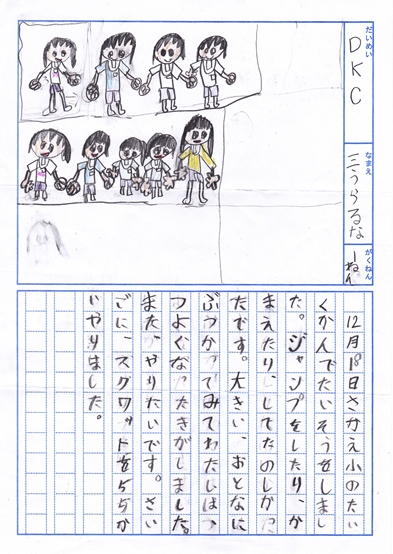 だいめい
DKC
なまえ
三うらるな
がくねん
一ねん
12月18日さかえ小のたい
くかんでたいそうをしまし
た。ジャンプをしたり、か
まえたり、してたのしかっ
たです。大きい、おとなに
ぶつかってみてわたしはつ
つよくなったきがしました。
またがやりたいです。さい
ごに、スクワットを55か
いやりました。